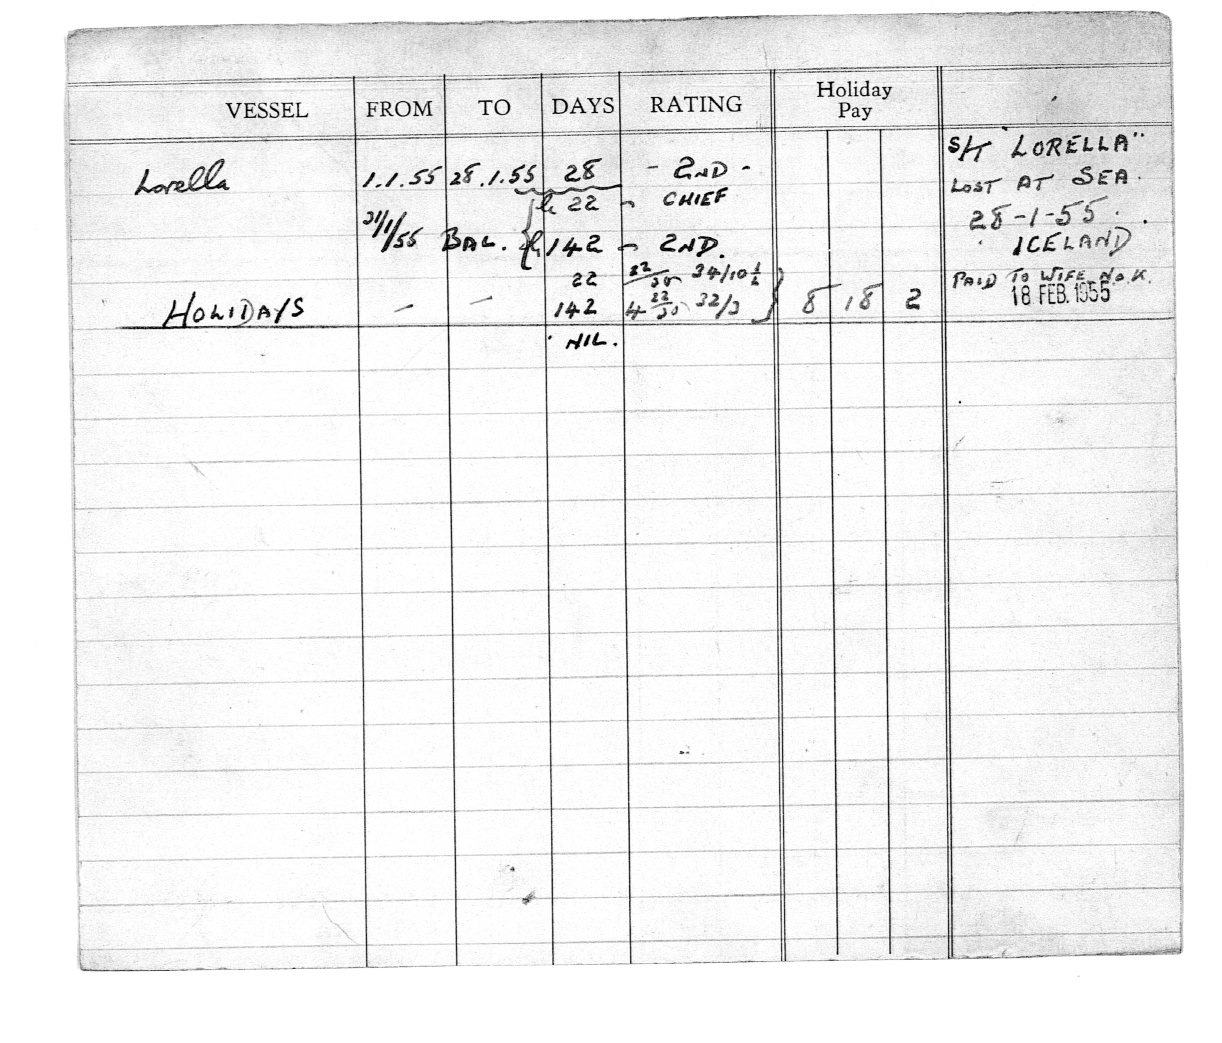 VESSEL FROM TO DAYS RATING Holiday Pay
Lorella 1.1.55 28.1.55 28 - 2ND -
22 - CHIEF
31/1/55 BAL. 142 - 2ND.
22 22/30 34/10½
HOLIDAYS - - 142 4 22/30 32/3 } 8 18 2
NIL.
S/T "LORELLA"
LOST AT SEA.
28-1-55.
ICELAND
PAID TO WIFE N.O.K.
18 FEB. 1955